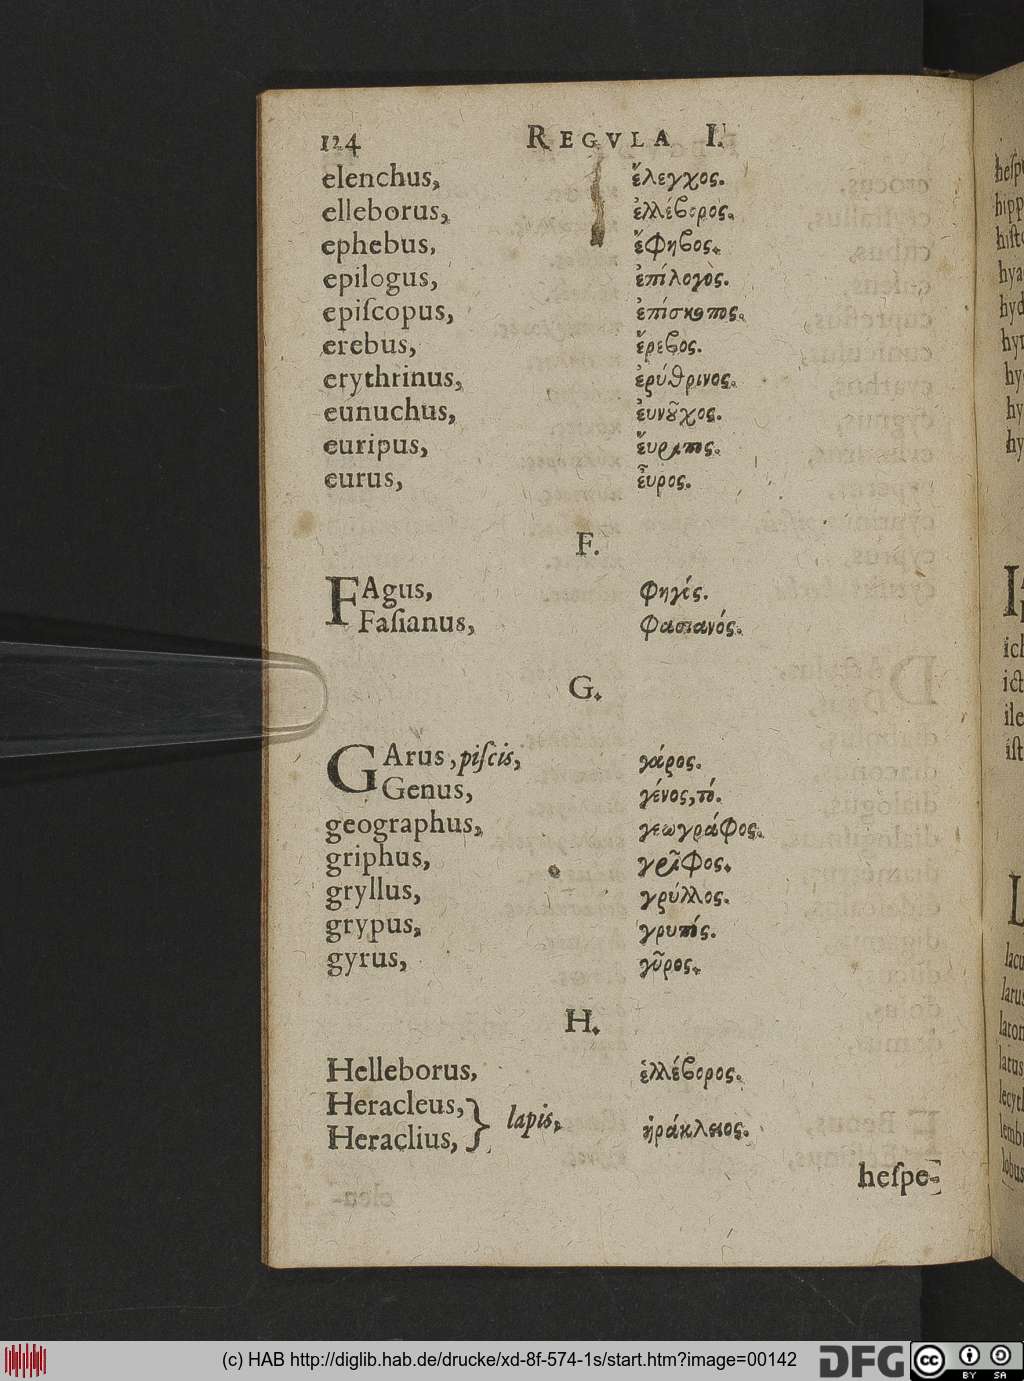 124 REGVLA I.
elenchus, ἔλεγχος.
elleborus, ἐλλέϐορος.
ephebus, ἔφηϐος.
epilogus, ἐπίλογος.
epiſcopus, ἐπίσκοπος.
erebus, ἔρεϐος.
erythrinus, ἐρύθρινος.
eunuchus, ἐυνοῦχος.
euripus, ἔυριπος.
eurus, ἖υρος.
F.
FAgus, φηγός.
Faſianus, φασιανός.
G.
GArus, piſcis, γάρος.
Genus, γένος, τό.
geographus, γεωγράφος.
griphus, γρῖφος.
gryllus, γρύλλος.
grypus, γρυπός.
gyrus, γῦρος.
H.
Helleborus, ἑλλέϐορος.
Heracleus, } lapis, ἡράκλειος.
Heraclius,
heſpe-
(c) HAB http://diglib.hab.de/drucke/xd-8f-574-1s/start.htm?image=00142 DFG cc BY SA